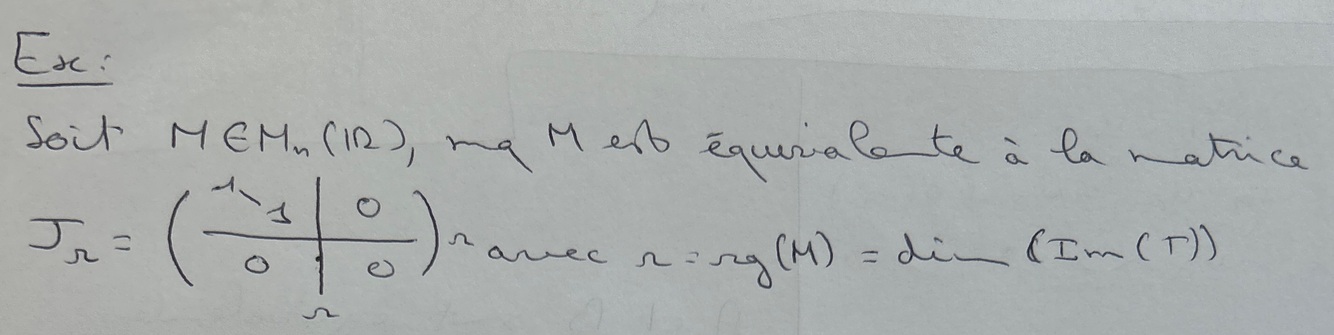 Ex:
Soit M ∈ M_n(ℝ), mq M est équivalente à la matrice
J_r = ( 1 \ 1 | 0 / 0 | 0 ) r avec r = rg(M) = dim (Im(T))
r